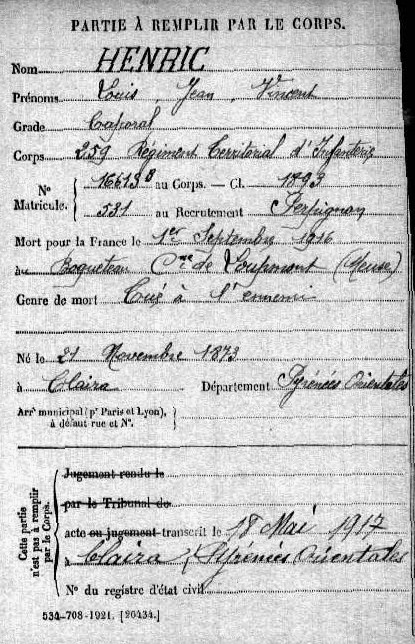 PARTIE À REMPLIR PAR LE CORPS.
Nom HENRIC
Prénoms Louis, Jean, Vincent
Grade Caporal
Corps 259 Régiment Territorial d'Infanterie
N° Matricule. { 16613 au Corps. — Cl. 1893
531 au Recrutement Perpignan
Mort pour la France le 1er Septembre 1916
à Boqueteau Cne de Loupmont (Meuse)
Genre de mort Tué à l'ennemi
Né le 21 Novembre 1873
à Claira Département Pyrénées Orientales
Arrt municipal (pr Paris et Lyon),
à défaut rue et N°.
Cette partie n'est pas à remplir par le Corps.
Jugement rendu le
par le Tribunal de
acte ou jugement transcrit le 18 Mai 1917
à Claira, Pyrénées Orientales
N° du registre d'état civil
534-708-1921. [26434.]